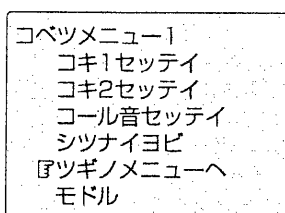 コベツメニュー1
コキ1セッテイ
コキ2セッテイ
コール音セッテイ
シツナイヨビ
☞ツギノメニューへ
モドル